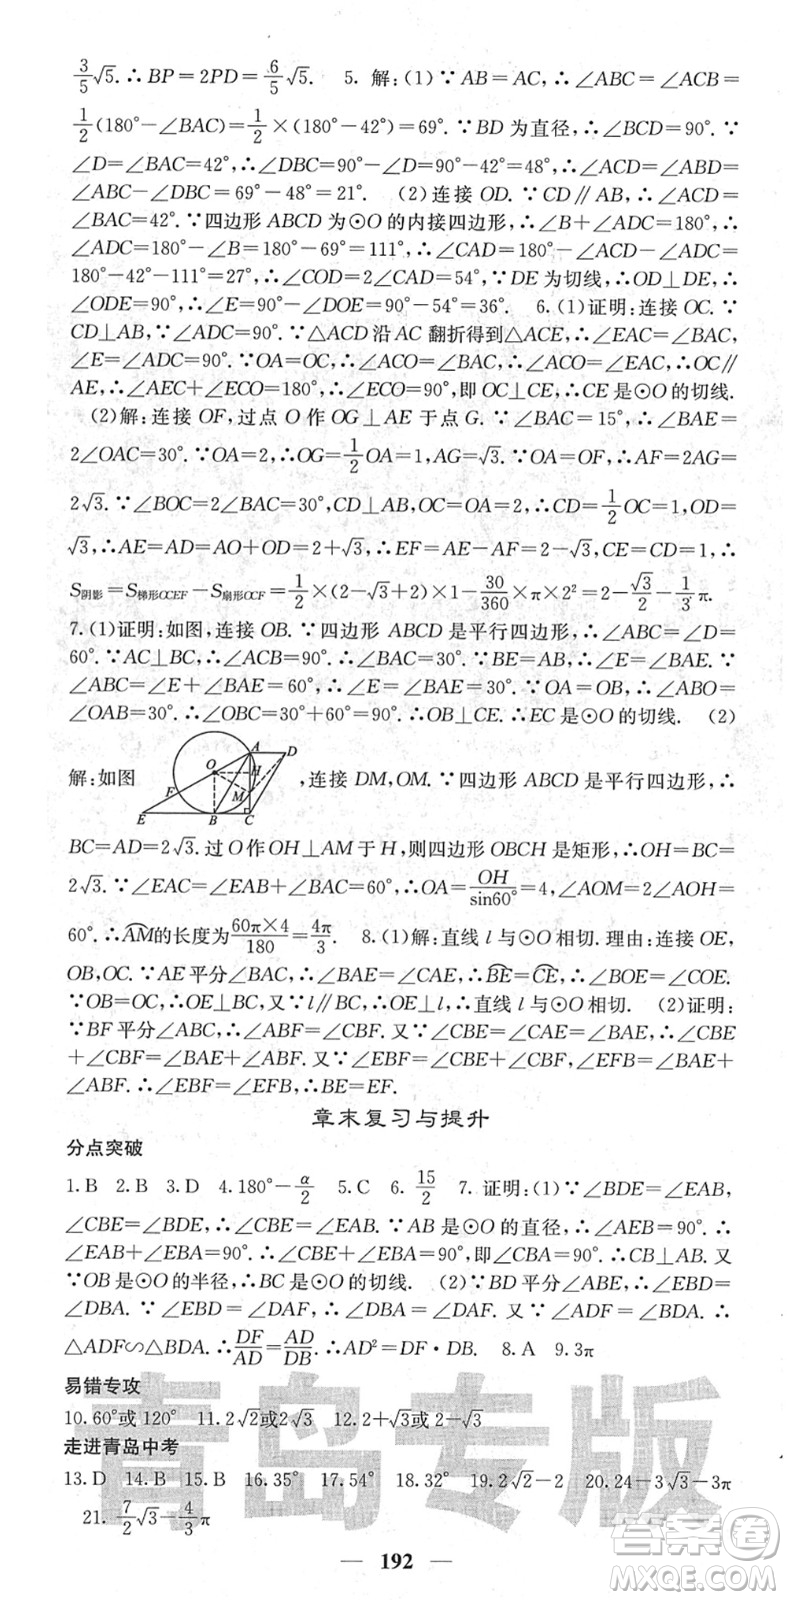 3/5√5.∴BP=2PD=6/5√5. 5. 解:(1)∵AB=AC,∴∠ABC=∠ACB=
1/2(180°-∠BAC)=1/2×(180°-42°)=69°.∵BD为直径,∴∠BCD=90°.∵
∠D=∠BAC=42°,∴∠DBC=90°-∠D=90°-42°=48°,∴∠ACD=∠ABD=
∠ABC-∠DBC=69°-48°=21°. (2)连接OD.∵CD∥AB,∴∠ACD=
∠BAC=42°.∵四边形ABCD为⊙O的内接四边形,∴∠B+∠ADC=180°,∴
∠ADC=180°-∠B=180°-69°=111°,∴∠CAD=180°-∠ACD-∠ADC=
180°-42°-111°=27°,∴∠COD=2∠CAD=54°,∵DE为切线,∴OD⊥DE,∴
∠ODE=90°,∴∠E=90°-∠DOE=90°-54°=36°. 6.(1)证明:连接OC.∵
CD⊥AB,∴∠ADC=90°.∵△ACD沿AC翻折得到△ACE,∴∠EAC=∠BAC,
∠E=∠ADC=90°.∵OA=OC,∴∠ACO=∠BAC,∴∠EAC=∠ACO,∴OC∥
AE,∴∠AEC+∠ECO=180°,∴∠ECO=90°,即OC⊥CE,∴CE是⊙O的切线.
(2)解:连接OF,过点O作OG⊥AE于点G.∵∠BAC=15°,∴∠BAE=
2∠OAC=30°.∵OA=2,∴OG=1/2OA=1,AG=√3.∵OA=OF,∴AF=2AG=
2√3.∵∠BOC=2∠BAC=30°,CD⊥AB,OC=OA=2,∴CD=1/2OC=1,OD=
√3,∴AE=AD=AO+OD=2+√3,∴EF=AE-AF=2-√3,CE=CD=1,∴
S阴影=S梯形OCEF-S扇形OCF=1/2×(2-√3+2)×1-30/360×π×2²=2-√3/2-1/3π.
7.(1)证明:如图,连接OB.∵四边形ABCD是平行四边形,∴∠ABC=∠D=
60°.∵AC⊥BC,∴∠ACB=90°,∴∠BAC=30°.∵BE=AB,∴∠E=∠BAE.∵
∠ABC=∠E+∠BAE=60°,∴∠E=∠BAE=30°.∵OA=OB,∴∠ABO=
∠OAB=30°.∴∠OBC=30°+60°=90°,∴OB⊥CE.∴EC是⊙O的切线. (2)
解:如图 O A D H F M E B C ,连接DM,OM.∵四边形ABCD是平行四边形,∴
BC=AD=2√3.过O作OH⊥AM于H,则四边形OBCH是矩形,∴OH=BC=
2√3.∵∠EAC=∠EAB+∠BAC=60°,∴OA=OH/sin60°=4,∠AOM=2∠AMH=
60°.∴AM⌒的长度为60π×4/180=4π/3. 8.(1)解:直线l与⊙O相切.理由:连接OE,
OB,OC.∵AE平分∠BAC,∴∠BAE=∠CAE,∴BE⌒=CE⌒,∴∠BOE=∠COE.
∵OB=OC,∴OE⊥BC.又∵l∥BC,∴OE⊥l,∴直线l与⊙O相切. (2)证明:
∵BF平分∠ABC,∴∠ABF=∠CBF.又∵∠CBE=∠CAE=∠BAE,∴∠CBE
+∠CBF=∠BAE+∠ABF.又∵∠EBF=∠CBE+∠CBF,∠EFB=∠BAE+
∠ABF.∴∠EBF=∠EFB,∴BE=EF.
章末复习与提升
分点突破
1.B 2.B 3.D 4.180°-α/2 5.C 6.15/2 7.证明:(1)∵∠BDE=∠EAB,
∠CBE=∠BDE,∴∠CBE=∠EAB.∵AB是⊙O的直径,∴∠AEB=90°.∴
∠EAB+∠EBA=90°,∴∠CBE+∠EBA=90°,即∠CBA=90°.∴CB⊥AB.又
∵OB是⊙O的半径,∴BC是⊙O的切线. (2)∵BD平分∠ABE,∴∠EBD=
∠DBA.∵∠EBD=∠DAF,∴∠DAF=∠DBA.又∵∠ADF=∠BDA,∴
△ADF∽△BDA.∴DF/AD=AD/DB.∴AD²=DF·DB. 8.A 9.3π
易错专攻
10.60°或120° 11.2√2或2√3 12.2+√3或2-√3
走进青岛中考
13.D 14.B 15.B 16.35° 17.54° 18.32° 19.2√2-2 20.24-3√3-3π
21.7/2√3-4/3π
青岛专版
192
答案圈